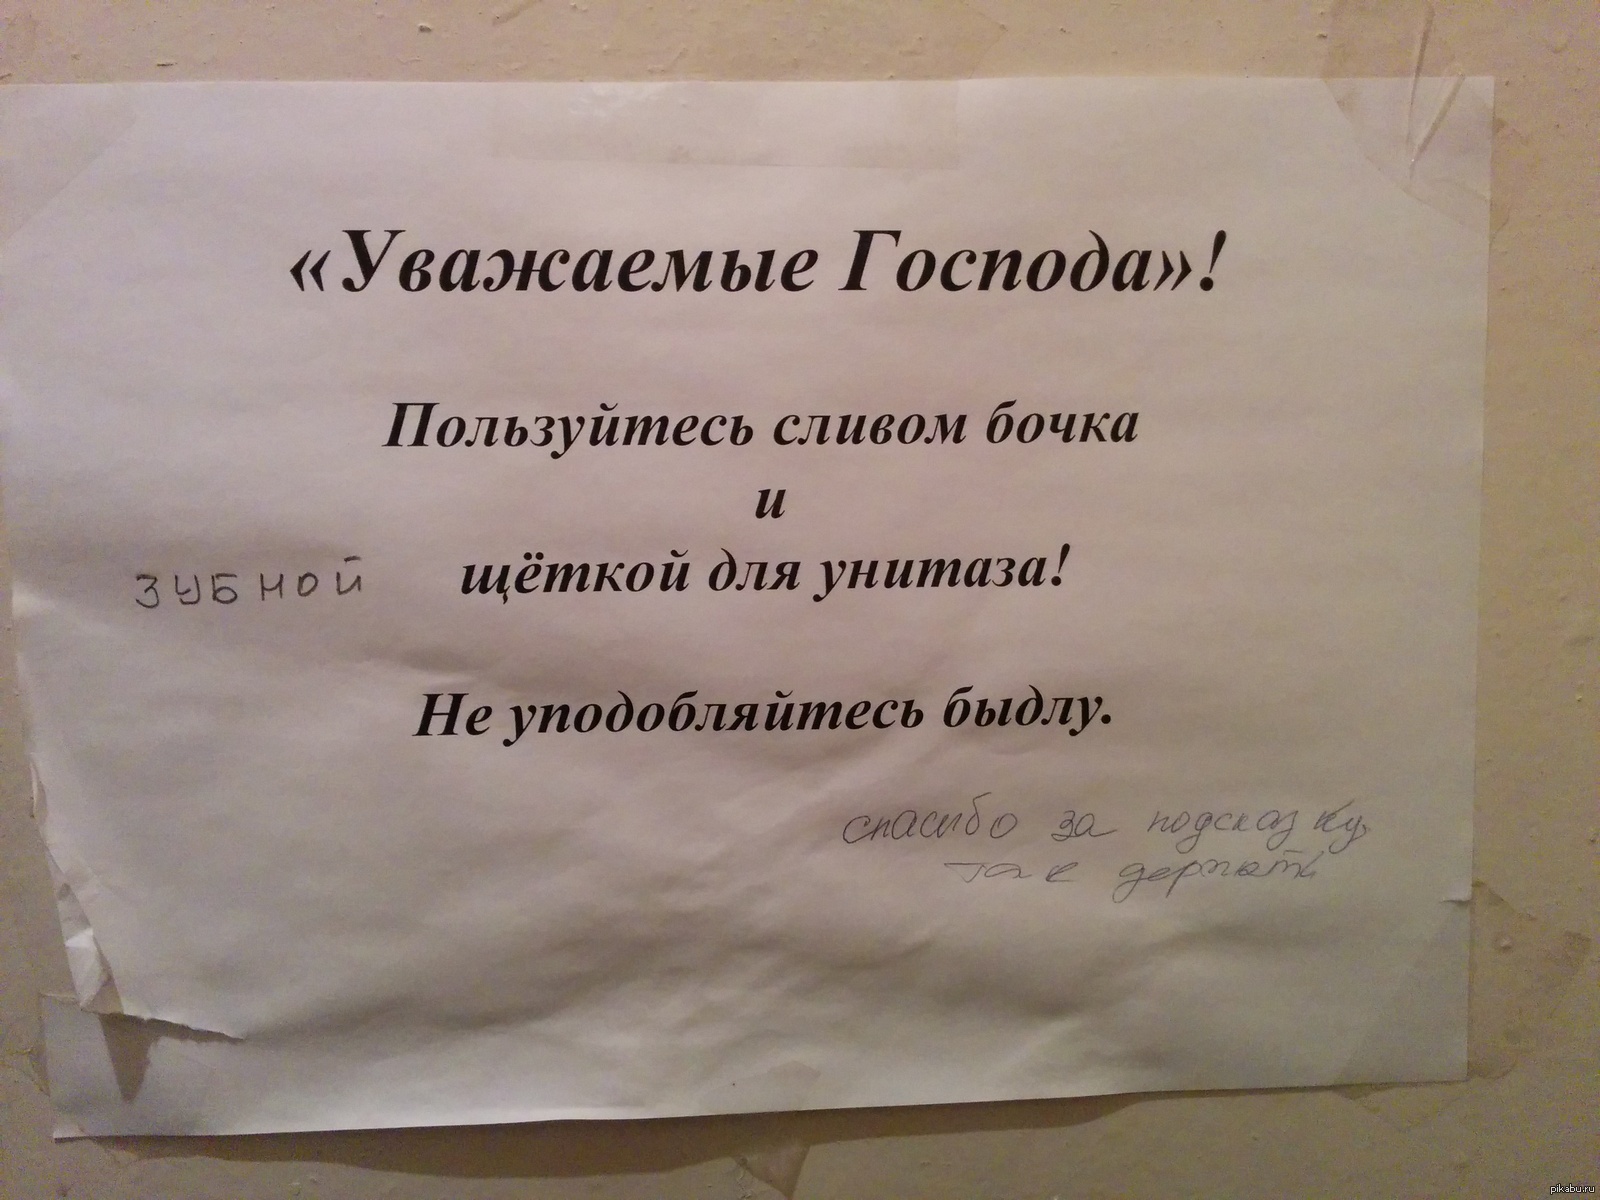 «Уважаемые Господа»!
Пользуйтесь сливом бочка
и
ЗУБНОЙ щёткой для унитаза!
Не уподобляйтесь быдлу.
спасибо за подсказку,
так держать
pikabu.ru